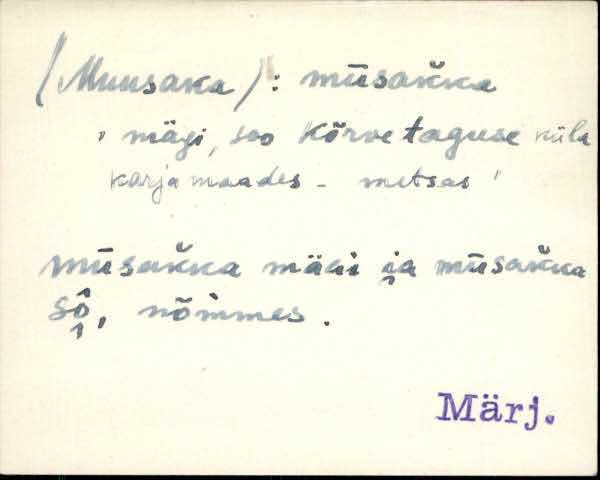 (Muusaka): mūsak̆ka
' mägi, soo Kõrvetaguse küla
karjamaades - metsas '
mūsak̆ka mäGi i̭a mūsak̆ka
sô̭, nõmmes.
Märj.